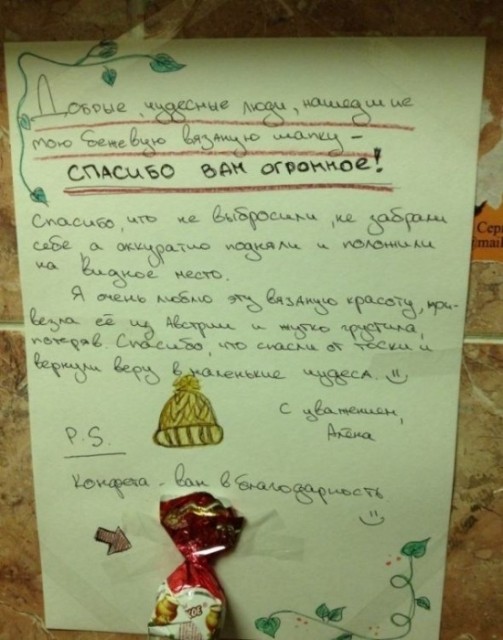 Добрые, чудесные люди, нашедшие
мою бежевую вязаную шапку –
СПАСИБО ВАМ ОГРОМНОЕ!
Спасибо, что не выбросили, не забрали
себе а аккуратно подняли и положили
на видное место.
Я очень люблю эту вязаную красоту, при-
везла её из Австрии и жутко грустила,
потеряв. Спасибо, что спасли от тоски и
вернули веру в маленькие чудеса.
С уважением,
Алёна
P.S.
Конфета – вам в благодарность
Сер
mail